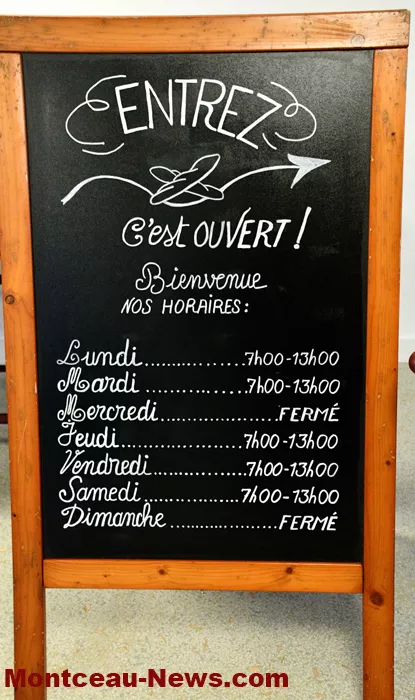 ENTREZ
C'est OUVERT !
Bienvenue
NOS HORAIRES :
Lundi..................7h00-13h00
Mardi..................7h00-13h00
Mercredi......................FERMÉ
Jeudi......................7h00-13h00
Vendredi..................7h00-13h00
Samedi..................7h00-13h00
Dimanche..................FERMÉ
Montceau-News.com